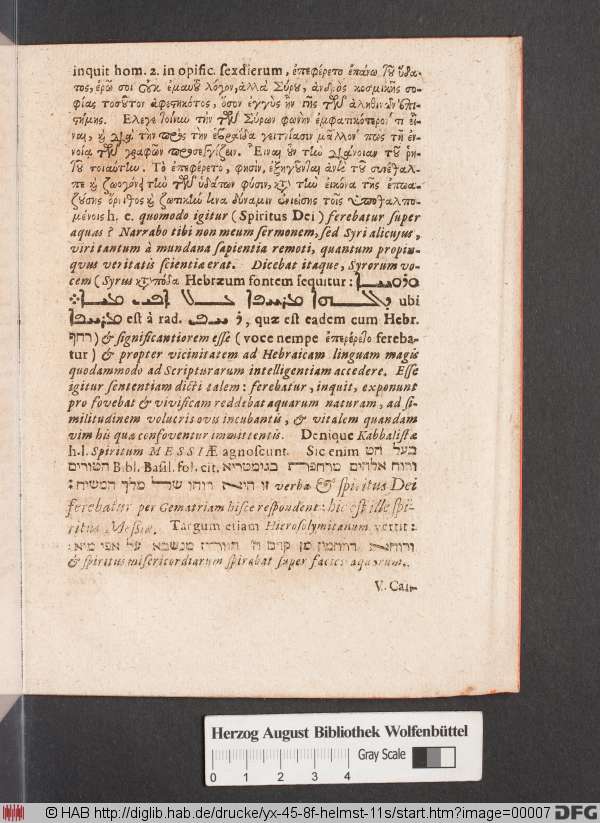 inquit hom. 2. in opific. sexdierum, ἐπεφέρετο ἐπάνω τοῦ ὕδα-
τος, ἐρῶ σοι οὐκ ἐμαυτοῦ λόγον, ἀλλὰ Σύρου, ἀνδρὸς κοσμικῆς σο-
φίας τοσοῦτον ἀφεστηκότος, ὅσον ἐγγὺς ἦν τῆς τῶν ἀληθινῶν ἐπι-
στήμης. Ελεγε τοίνυν τὴν τῶν Σύρων φωνὴν ἐμφατικότερόν τι εἶ-
ναι, καὶ διὰ τὴν πρὸς τὴν ἑβραΐδα γειτνίασιν μᾶλλόν πως τῇ ἐν-
νοίᾳ τῶν γραφῶν προσεγγίζειν. Εἶναι οὖν τὴν διάνοιαν τοῦ ῥη-
τοῦ τοιαύτην. Τὸ ἐπεφέρετο, φησὶν, ἐξηγοῦνται ἀντὶ τοῦ συνέθαλ-
πε καὶ ζωογόνει τὴν τῶν ὑδάτων φύσιν, κατὰ τὴν εἰκόνα τῆς ἐπωα-
ζούσης ὄρνιθος καὶ ζωτικήν τινα δύναμιν ἐνιείσης τοῖς ὑποθαλπο-
μένοις h. e. quomodo igitur (Spiritus Dei) ferebatur super
aquas? Narrabo tibi non meum sermonem, sed Syri alicujus,
viri tantum à mundana sapientia remoti, quantum propin-
quus veritatis scientia erat. Dicebat itaque, Syrorum vo-
cem (Syrus κατὰ πόδα Hebræum fontem sequitur: ܘܪܘܚܗ
ܕܐܠܗܐ ܡܪܚܦܐ ܥܠ ܐܦܝ ܡܝܐ: ubi
ܡܪܚܦܐ est à rad. ܪܚܦ, quæ est eadem cum Hebr.
רחף) & significantiorem esse (voce nempe ἐπεφέρετο fereba-
tur) & propter vicinitatem ad Hebraicam linguam magis
quodammodo ad Scripturarum intelligentiam accedere. Esse
igitur sententiam dicti talem: ferebatur, inquit, exponunt
pro fovebat & vivificam reddebat aquarum naturam, ad si-
militudinem volucris ovis incubantis, & vitalem quandam
vim his quæ confoventur immittentis. Denique Kabbalistæ
h. l. Spiritum MESSIÆ agnoscunt. Sic enim בעל הט
הטורים Bibl. Basil. fol. cit. ורוח אלהים מרחפת בגומטריא
זו היא רוחו של מלך המשיח: verba & spiritus Dei
ferebatur per Gematriam hisce respondent: hic est ille spi-
ritus Messiæ. Targum etiam Hierosolymitanum vertit:
ורוחא דרחמין מן קדם ה׳ הוות מנשבא על אפי מיא:
& spiritus misericordiarum spirabat super facies aquarum.
V. Car-
Herzog August Bibliothek Wolfenbüttel
Gray Scale
0 1 2 3 4
© HAB http://diglib.hab.de/drucke/yx-45-8f-helmst-11s/start.htm?image=00007
DFG